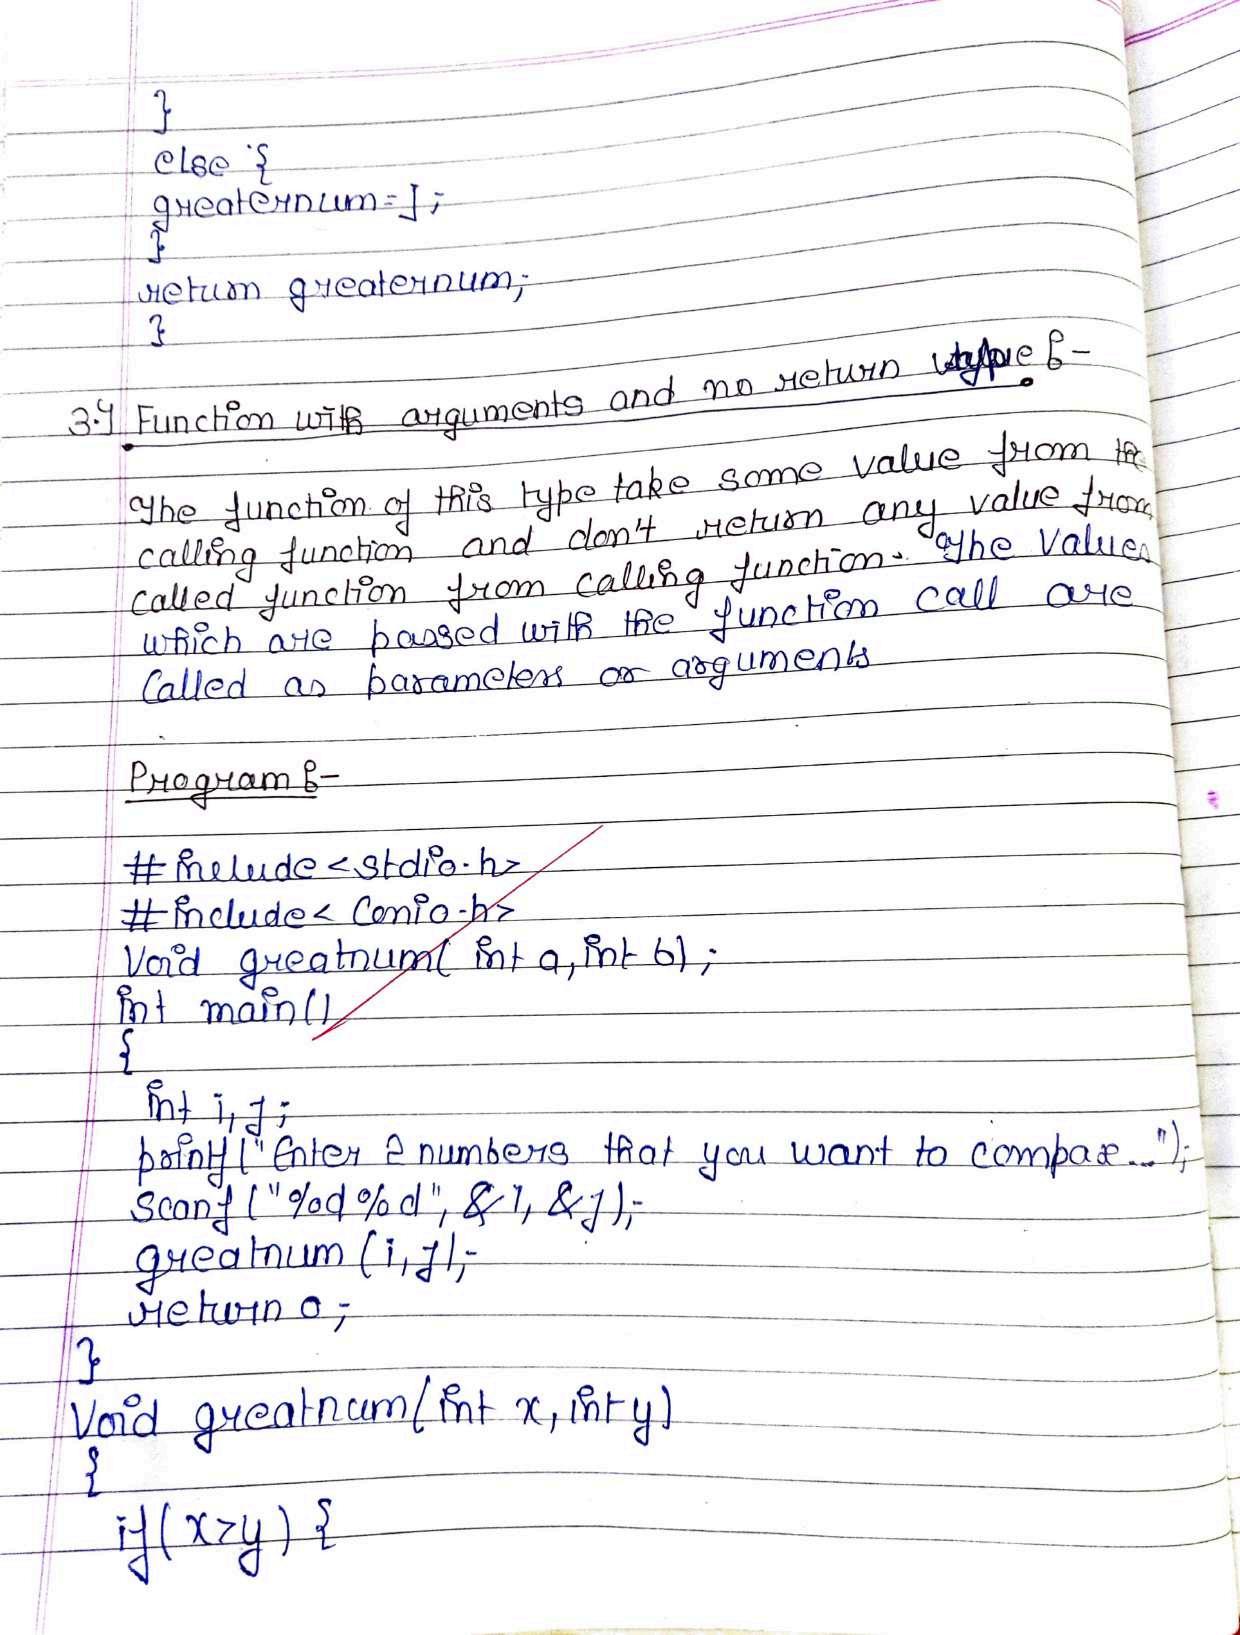 }
else {
greaternum=J;
}
return greaternum;
}
3.4 Function with arguments and no return type :-
The function of this type take some value from the
calling function and don't return any value from
called function from calling function. The values
which are passed with the function call are
Called as parameters or arguments
Program :-
#include <stdio.h>
#include< Conio.h>
Void greatnum( int a, int b) ;
int main()
{
int i, j ;
printf ("Enter 2 numbers that you want to compare...");
Scanf ("%d%d", &i, &j);
greatnum (i, j);
return 0 ;
}
Void greatnum(int x, int y)
{
if( x>y) {